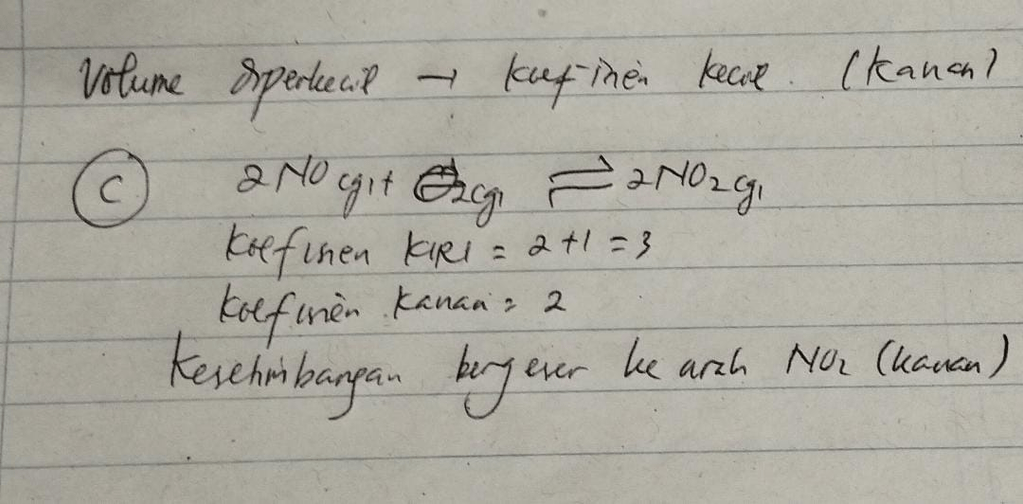 Volume diperkecil → koefisien kecil. (kanan)
C 2NO(g) + O2(g) ⇌ 2NO2(g)
Koefisien KIRI = 2+1 = 3
Koefisien kanan = 2
Kesetimbangan bergeser ke arah NO2 (kanan)